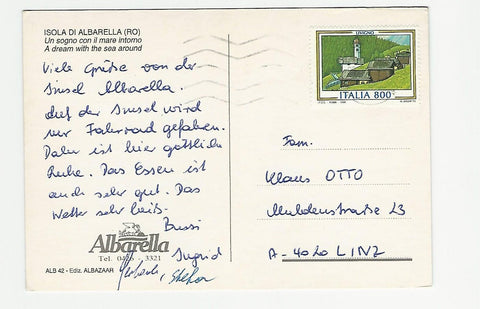 ISOLA DI ALBARELLA (RO)
Un sogno con il mare intorno
A dream with the sea around
Viele Grüße von der
Insel Albarella.
Auf der Insel wird
nur Fahrrad gefahren.
Daher ist hier göttliche
Ruhe. Das Essen ist
auch sehr gut. Das
Wetter sehr heiß.
Bussi
Ingrid
Stefan
Albarella
Tel. 0426 - 3321
ALB 42 - Ediz. ALBAZAAR
ITALIA 800
Fam.
Klaus OTTO
Muldenstraße 23
A-4020 LINZ